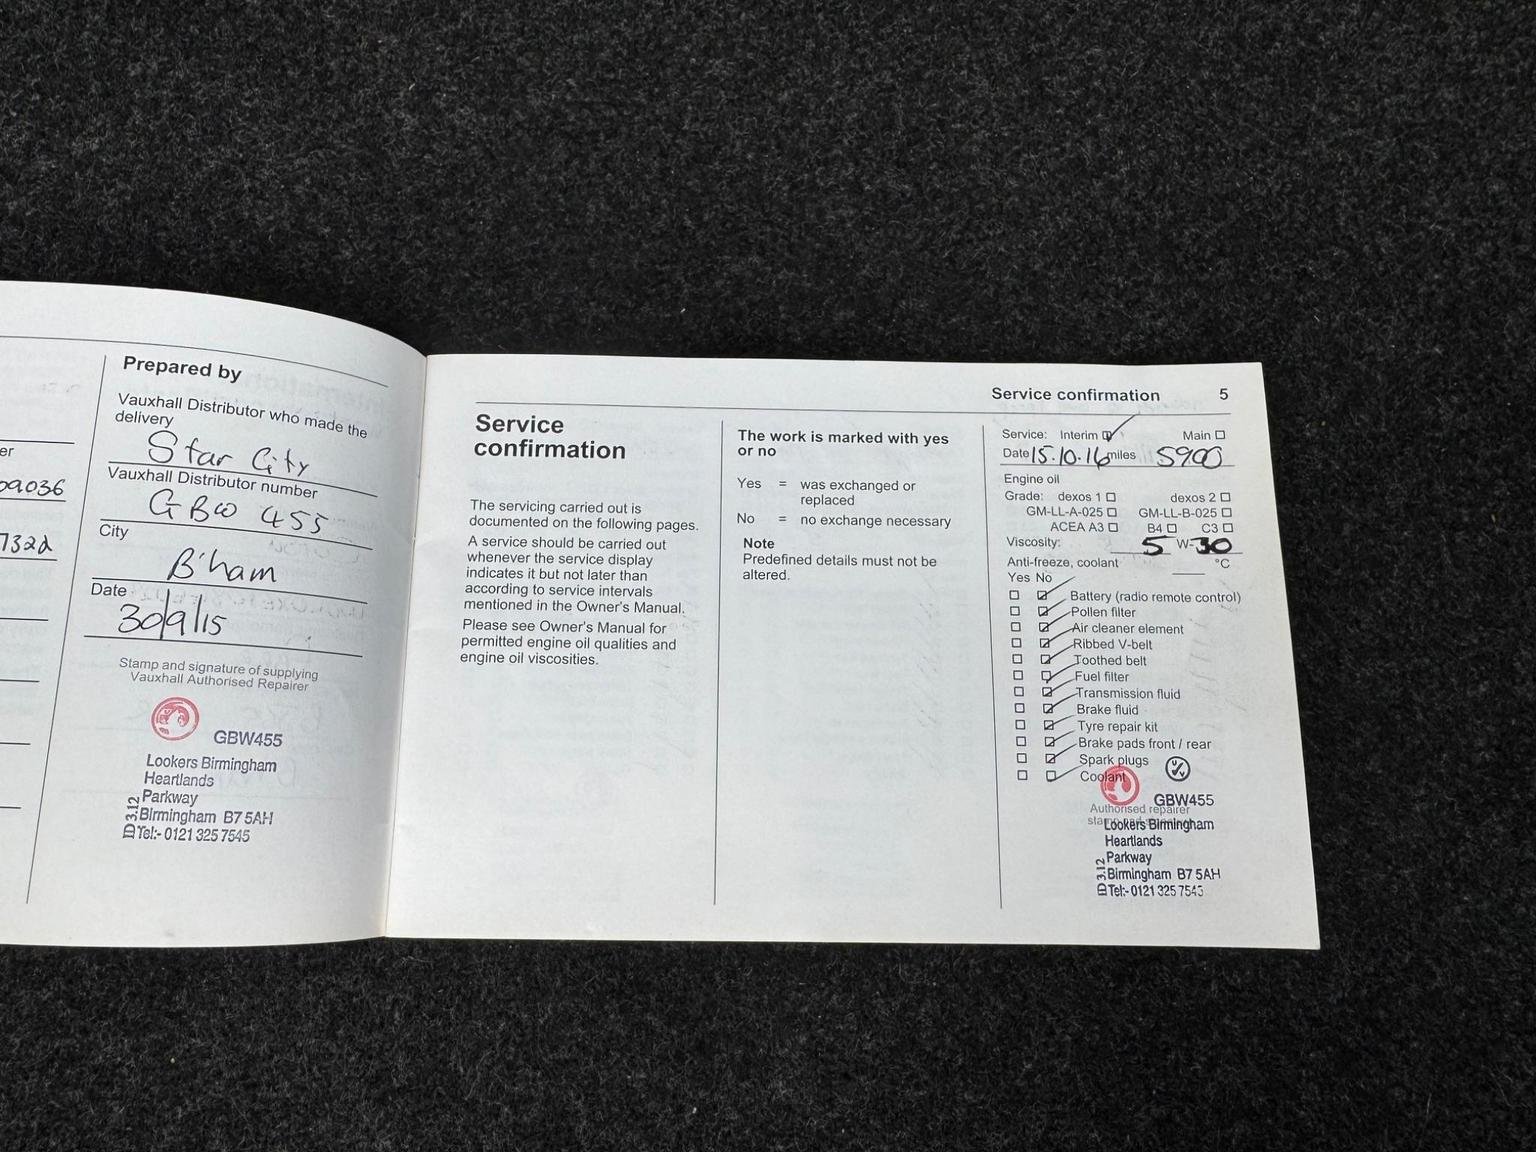 er
09036
7322
Prepared by
Vauxhall Distributor who made the
delivery
Star City
Vauxhall Distributor number
GBW 455
City
B'ham
Date
30/9/15
Stamp and signature of supplying
Vauxhall Authorised Repairer
GBW455
Lookers Birmingham
Heartlands
Parkway
Birmingham B7 5AH
Tel:- 0121 325 7545
ID 3.12
Service confirmation 5
Service
confirmation
The servicing carried out is
documented on the following pages.
A service should be carried out
whenever the service display
indicates it but not later than
according to service intervals
mentioned in the Owner's Manual.
Please see Owner's Manual for
permitted engine oil qualities and
engine oil viscosities.
The work is marked with yes
or no
Yes = was exchanged or
replaced
No = no exchange necessary
Note
Predefined details must not be
altered.
Service: Interim Main
Date 15.10.16 miles 5900
Engine oil
Grade: dexos 1 dexos 2
GM-LL-A-025 GM-LL-B-025
ACEA A3 B4 C3
Viscosity: 5 W-30
Anti-freeze, coolant °C
Yes No
Battery (radio remote control)
Pollen filter
Air cleaner element
Ribbed V-belt
Toothed belt
Fuel filter
Transmission fluid
Brake fluid
Tyre repair kit
Brake pads front / rear
Spark plugs
Coolant
GBW455
Authorised repairer
Lookers Birmingham
Heartlands
Parkway
Birmingham B7 5AH
Tel:- 0121 325 7545
ID 3.12